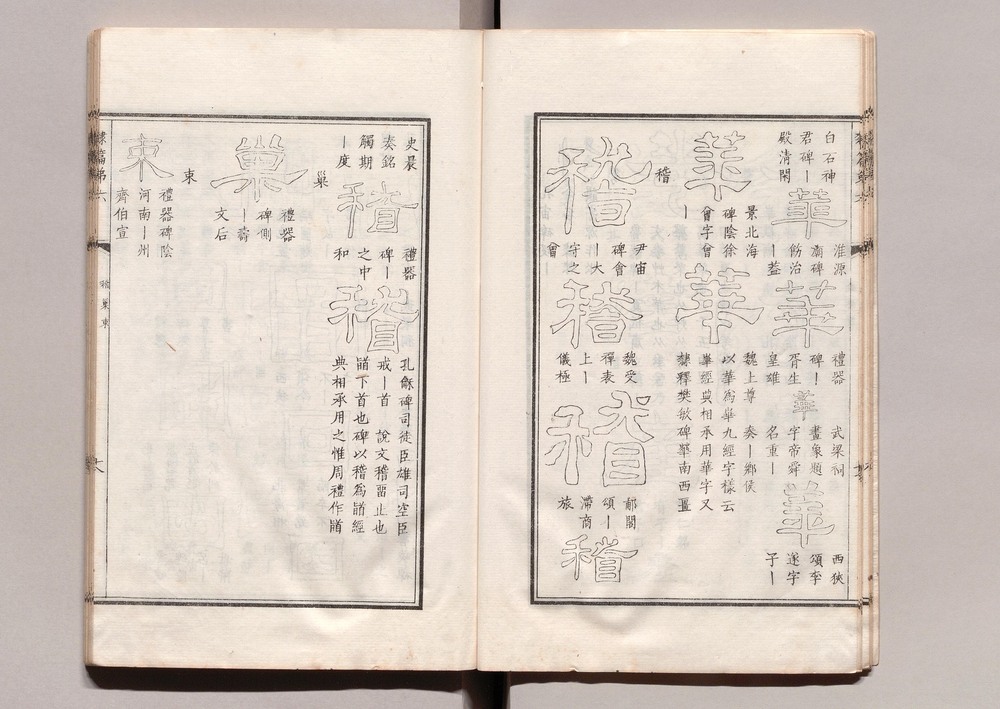 白石神
君碑丨
殿清閑
華
淮源
廟碑
飭治
丨葢
華
禮器
碑丨
胥生
皇雄
華
武梁祠
畫象題
字帝舜
名重丨
華
西狹
頌李
遂字
子丨
華
景北海
碑陰徐
曾字曾
丨
華
魏上尊
奏丨鄉侯
以華為華九經字樣云
華經典相承用華字又
隸釋樊敏碑華南西畺
稽
稽
尹宙
碑會
丨大
守之
曾
稽
魏受
禪表
上丨
儀極
稽
郙閣
頌丨
滯商
旅
稽
史晨
奏銘
觸期
丨度
稽
禮器
碑丨
之中
和
稽
孔龢碑司徒臣雄司空臣
戒丨首
說文稽畱止也
䭫下首也碑以稽為䭫經
典相承用之惟周禮作䭫
巢
巢
禮器
碑側
丨壽
文后
束
束
禮器碑陰
河南丨州
齊伯宣
隸篇第六
稽巢束